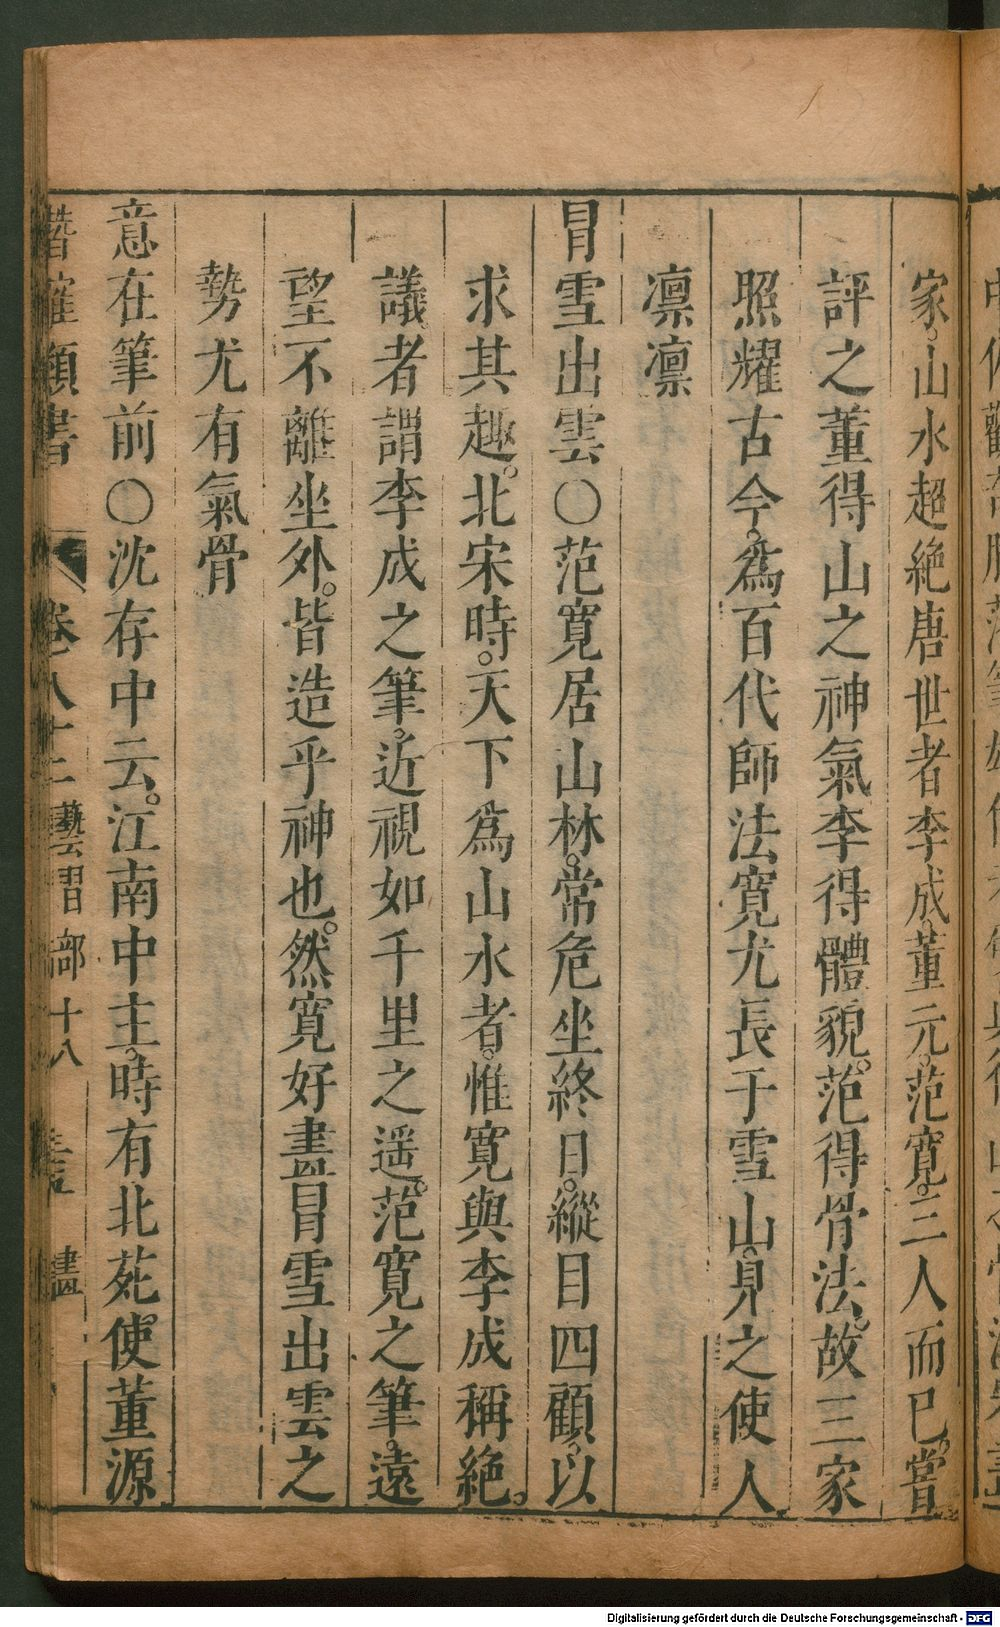 家。山水超絶唐世者李成。董元。范寛。三人而已。嘗
評之董得山之神氣李得體貌。范得骨法。故三家
照耀古今。爲百代師法寛尤長于雪山。見之使人
凛凛
冐雪出雲○范寛居山林。常危坐終日。縱目四顧。以
求其趣。北宋時。天下爲山水者。惟寛與李成稱絶。
議者謂李成之筆。近視如千里之遥。范寛之筆。遠
望不離坐外。皆造乎神也。然寛好畫冐雪出雲之
勢尤有氣骨
意在筆前○沈存中云。江南中主。時有北苑使董源
潛確類書 卷八十二 藝習部十八 畫
Digitalisierung gefördert durch die Deutsche Forschungsgemeinschaft - DFG